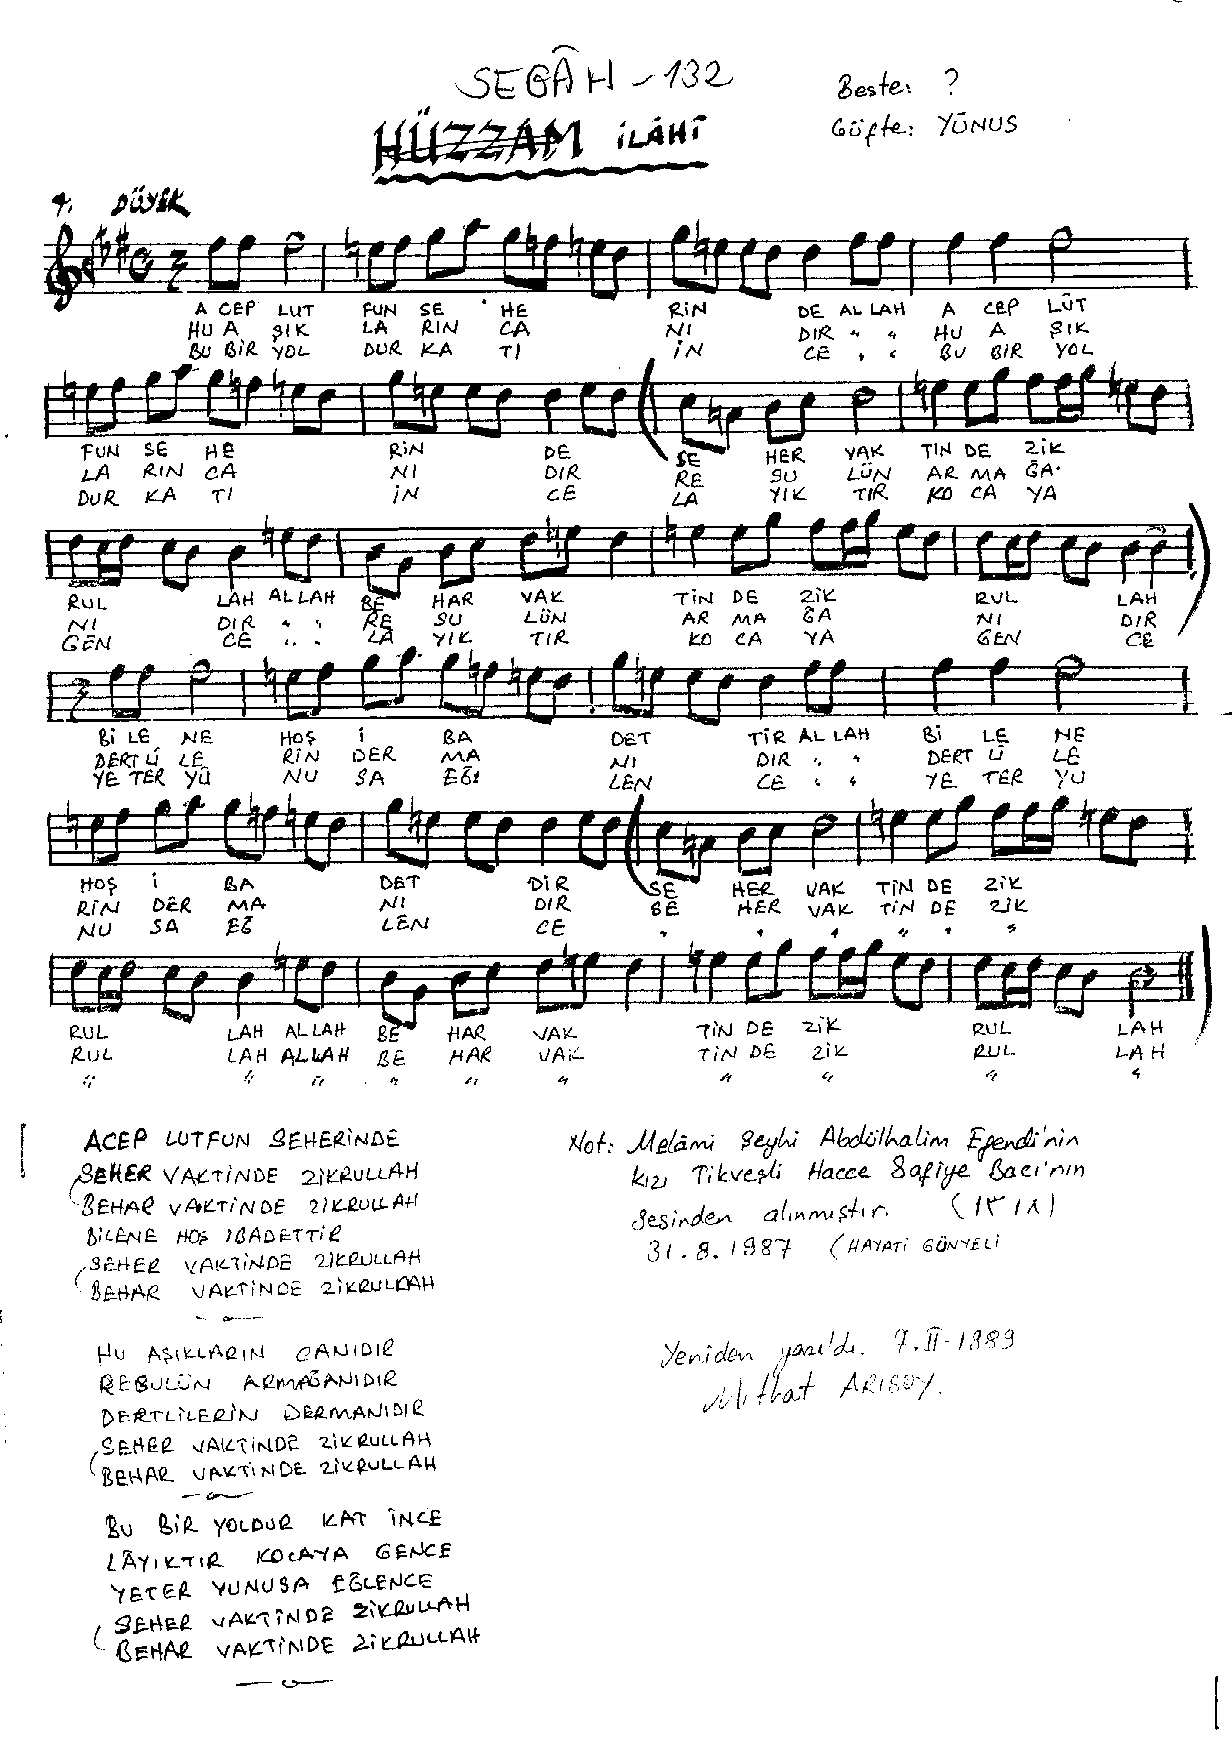 SEGÂH - 132
Beste: ?
HÜZZAM İLÂHİ
Güfte: YÛNUS
DÜYEK
A CEP LUT FUN SE HE RİN DE AL LAH A CEP LÛT
HU A ŞIK LA RIN CA NI DIR " " HU A ŞIK
BU BİR YOL DUR KA TI İN CE " " BU BİR YOL
FUN SE HE RİN DE SE HER VAK TİN DE ZİK
LA RIN CA NI DIR RE SU LÜN AR MA ĞA
DUR KA TI İN CE LA YIK TIR KO CA YA
RUL LAH AL LAH BE HAR VAK TİN DE ZİK RUL LAH
NI DIR " " RE SU LÜN AR MA ĞA NI DIR
GEN CE " " LA YIK TIR KO CA YA GEN CE
Bİ LE NE HOŞ İ BA DET TİR AL LAH Bİ LE NE
DERT Lİ LE RİN DER MA NI DIR " " DERT Lİ LE
YE TER YÛ NU SA EĞ LEN CE " " YE TER YU
HOŞ İ BA DET DİR SE HER VAK TİN DE ZİK
RİN DER MA NI DIR BE HER VAK TİN DE ZİK
NU SA EĞ LEN CE " " " " " "
RUL LAH AL LAH BE HAR VAK TİN DE ZİK RUL LAH
RUL LAH AL LAH BE HAR VAK TİN DE ZİK RUL LAH
" " " " " " " " " "
ACEP LUTFUN SEHERİNDE
SEHER VAKTİNDE ZİKRULLAH
BEHAR VAKTİNDE ZİKRULLAH
BİLENE HOŞ İBADETTİR
SEHER VAKTİNDE ZİKRULLAH
BEHAR VAKTİNDE ZİKRULLAH
HU AŞIKLARIN CANIDIR
RESULÜN ARMAĞANIDIR
DERTLİLERİN DERMANIDIR
SEHER VAKTİNDE ZİKRULLAH
BEHAR VAKTİNDE ZİKRULLAH
BU BİR YOLDUR KAT İNCE
LÂYIKTIR KOCAYA GENCE
YETER YUNUSA EĞLENCE
SEHER VAKTİNDE ZİKRULLAH
BEHAR VAKTİNDE ZİKRULLAH
Not: Melâmi Şeyhi Abdülhalim Efendi'nin
kızı Tikveşli Hacce Safiye Bacı'nın
sesinden alınmıştır. (١٣١٨)
31.8.1987 (HAYATİ GÜNYELİ
Yeniden yazıldı. 7.II-1989
Mithat ARISOY.